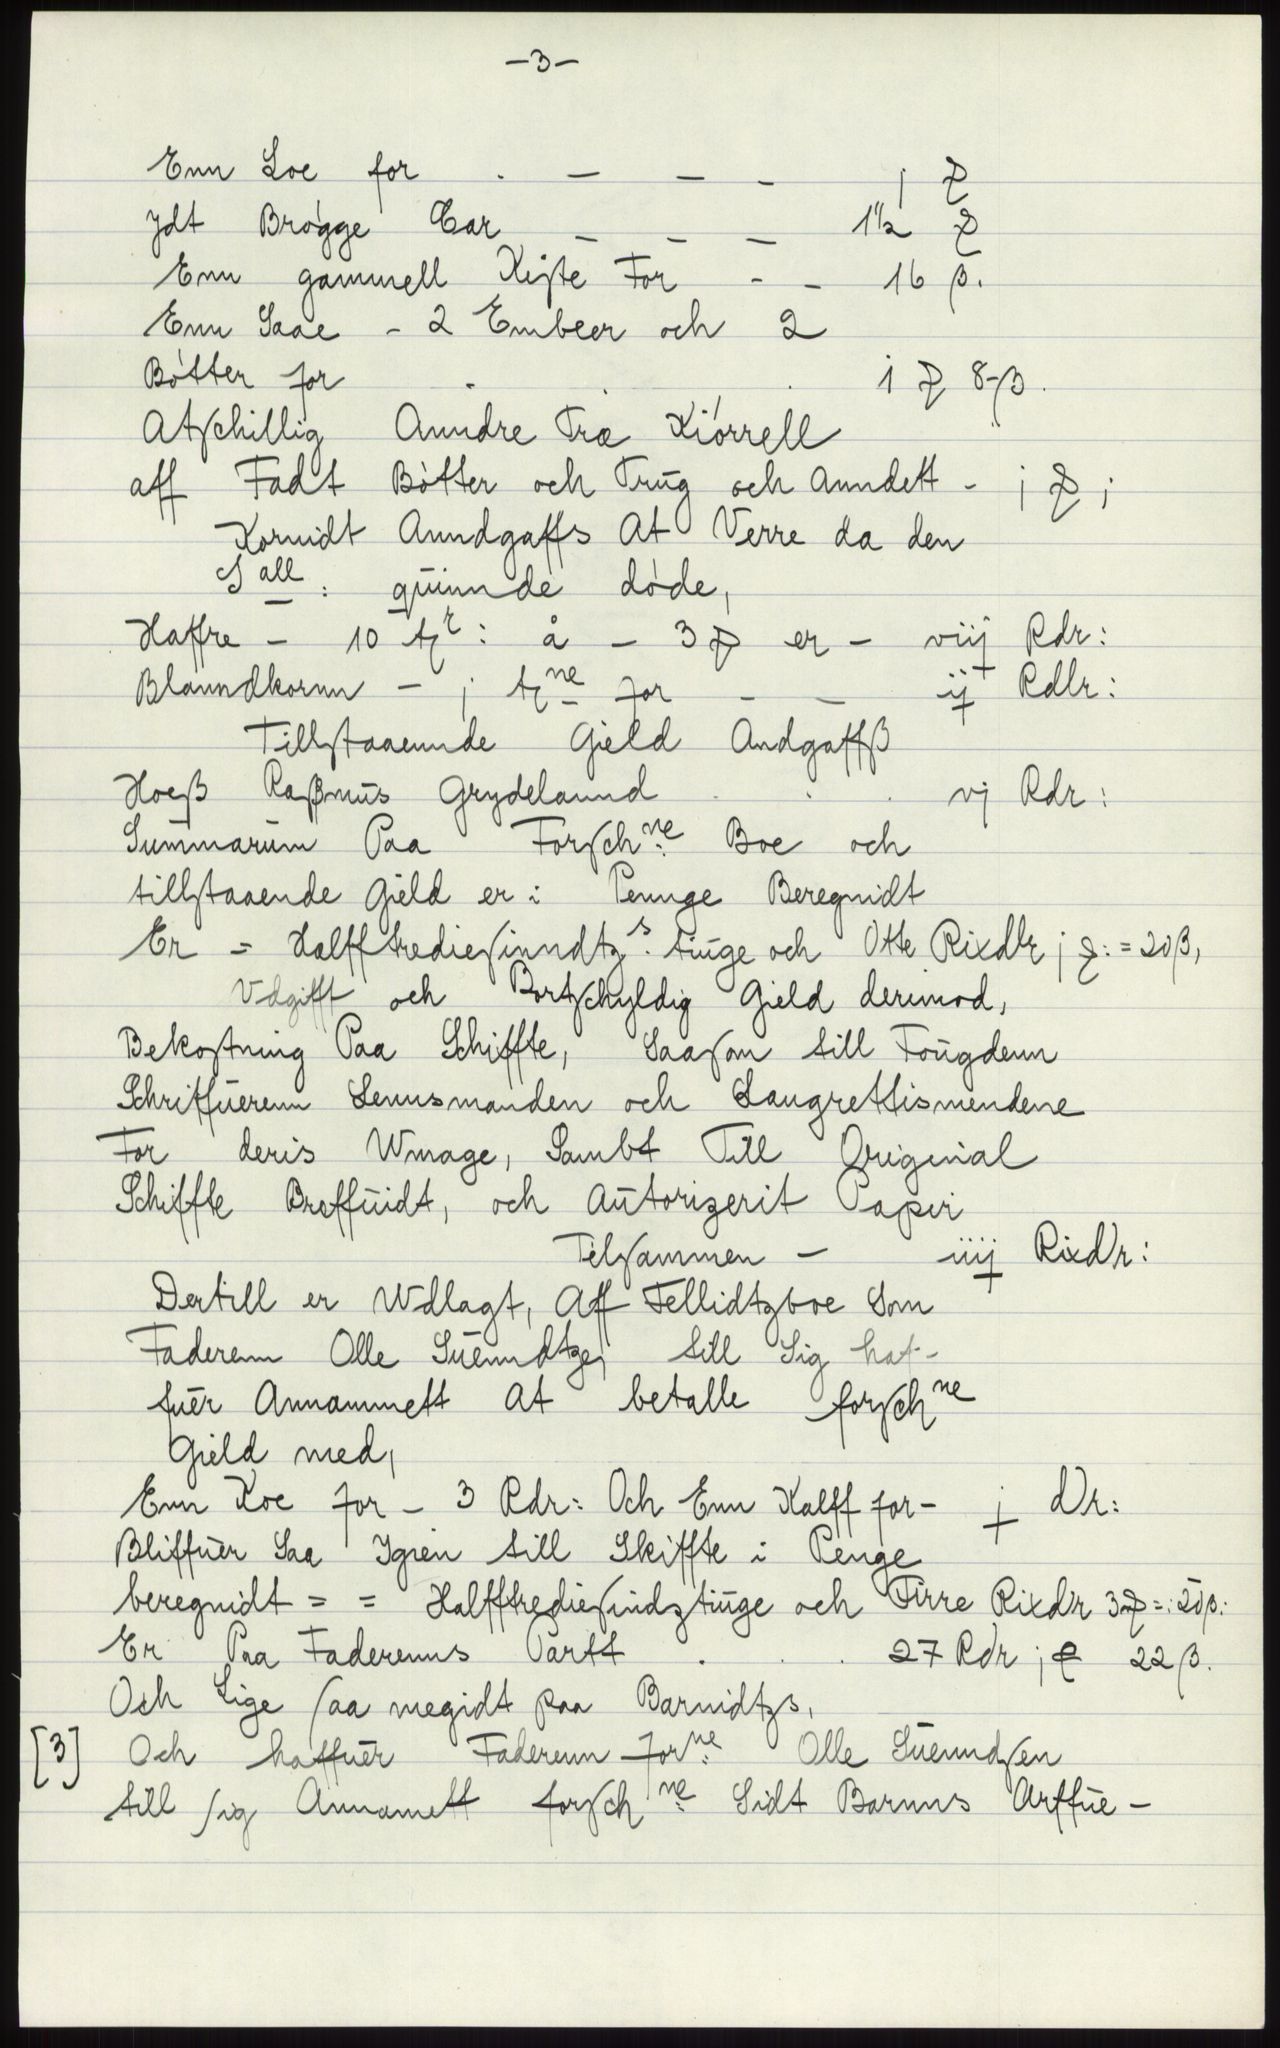 -3-
Enn Loe for . - - - j ₰
Jdt Brøgge Car - - - 1½ ₰
Enn gammell Kiste For - - 16 β.
Enn Saae - 2 Embeer och 2
Bøtter for . . . 1 ₰ 8-β.
Atschillig Anndre Træ Kiørrell
aff Fadt Bøtter och Trug och Anndett - j ₰ ;
Kornidt Anndgaffs At Verre da den
Sall: quinnde døde,
Haffre - 10 tzr: å - 3 ₰ er - viij Rdr:
Blanndkornn - j tzne for - - ij Rdlr:
Tillstaaennde Gield Andgaffß
Hoeß Raßmus Grydelannd . . . vj Rdr:
Summarum Paa Forschne: Boe och
tillstaaende Gield er i Pennge Beregnidt
Er = Halfftrediesinndtzs. tiuge och Otte Rixdlr j ₰: = 20β,
Vdgifft och Bortschyldig Gield derimod,
Bekostning Paa Schiffte, Saasom till Fougdenn
Schriffuerenn Lennsmanden och Laugrettismendene
For deris Wmage, Sambt Till Original
Schiffte Breffuidt, och Autorizerit Papir
Tilsammen - iiij Rixdlr:
Dertill er Wdlagt, Aff Fellidtzboe Som
Faderenn Olle Suenndtzen till Sig haf-
fuer Annammett At betalle forschne
Gield med,
Enn Koe for - 3 Rdr: Och Enn Kalff for - j dlr:
Bliffuer Saa Jgien till Skiffte i Penge
beregnidt = = Halfftrediesindztiuge och Firre Rixdlr 3₰ =: 20β:
Er Paa Faderenns Partt . . . 27 Rdr j ₰ 22 β.
Och Lige saa megidt paa Barnidtzs,
[3] Och haffuer Faderenn forne: Olle Suenndsen
till sig Annamett forschne: Sidt Barnns Arffue-